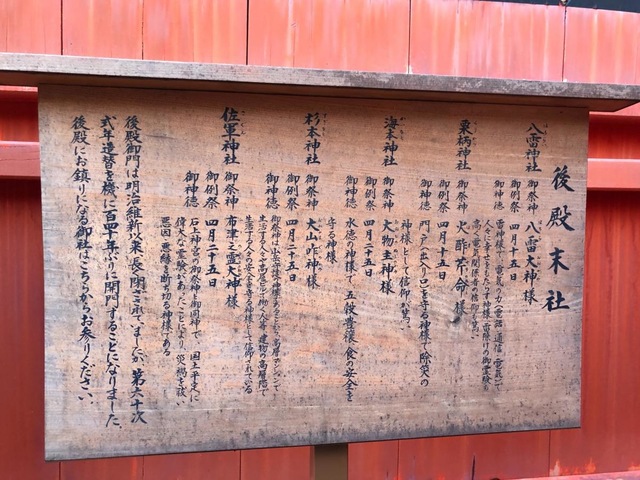 後殿末社
八雷神社
御祭神 八雷大神様
御例祭 四月十五日
御神徳 雷神様で、電気の力(電話 通信 電気)で
人々に幸せをもたらす神様。雷除けの御霊験も
高く電気関係者の信仰も篤い
栗柄神社
御祭神 火酢芹命様
御例祭 四月十五日
御神徳 門、戸(出入り口)を守る神様で除災の
神様として信仰が篤い
海本神社
御祭神 大物主神様
御例祭 四月二十五日
御神徳 水徳の神様で、五穀豊穣、食の安全を
守る神様
杉本神社
御祭神 大山咋神様
御例祭 四月二十五日
御神徳 御祭神は山を守護する神様であることから高層マンションで
生活する人々や高層ビルで働く人々等 建物の高層階で
生活する人々の安全を守る神様として信仰されている
佐軍神社
御祭神 布津之霊大神様
御例祭 四月二十五日
御神徳 石上神宮の御祭神と御同神で、国土平定に
偉大な霊験があったことにより、災禍を祓い
悪因、悪縁を断ち切る神様である
後殿御門は明治維新以来、長く閉ざされていましたが、第六十次
式年造替を機に百四十年ぶりに開門することになりました。
後殿にお鎮りになる御社はこちらからお参りください。